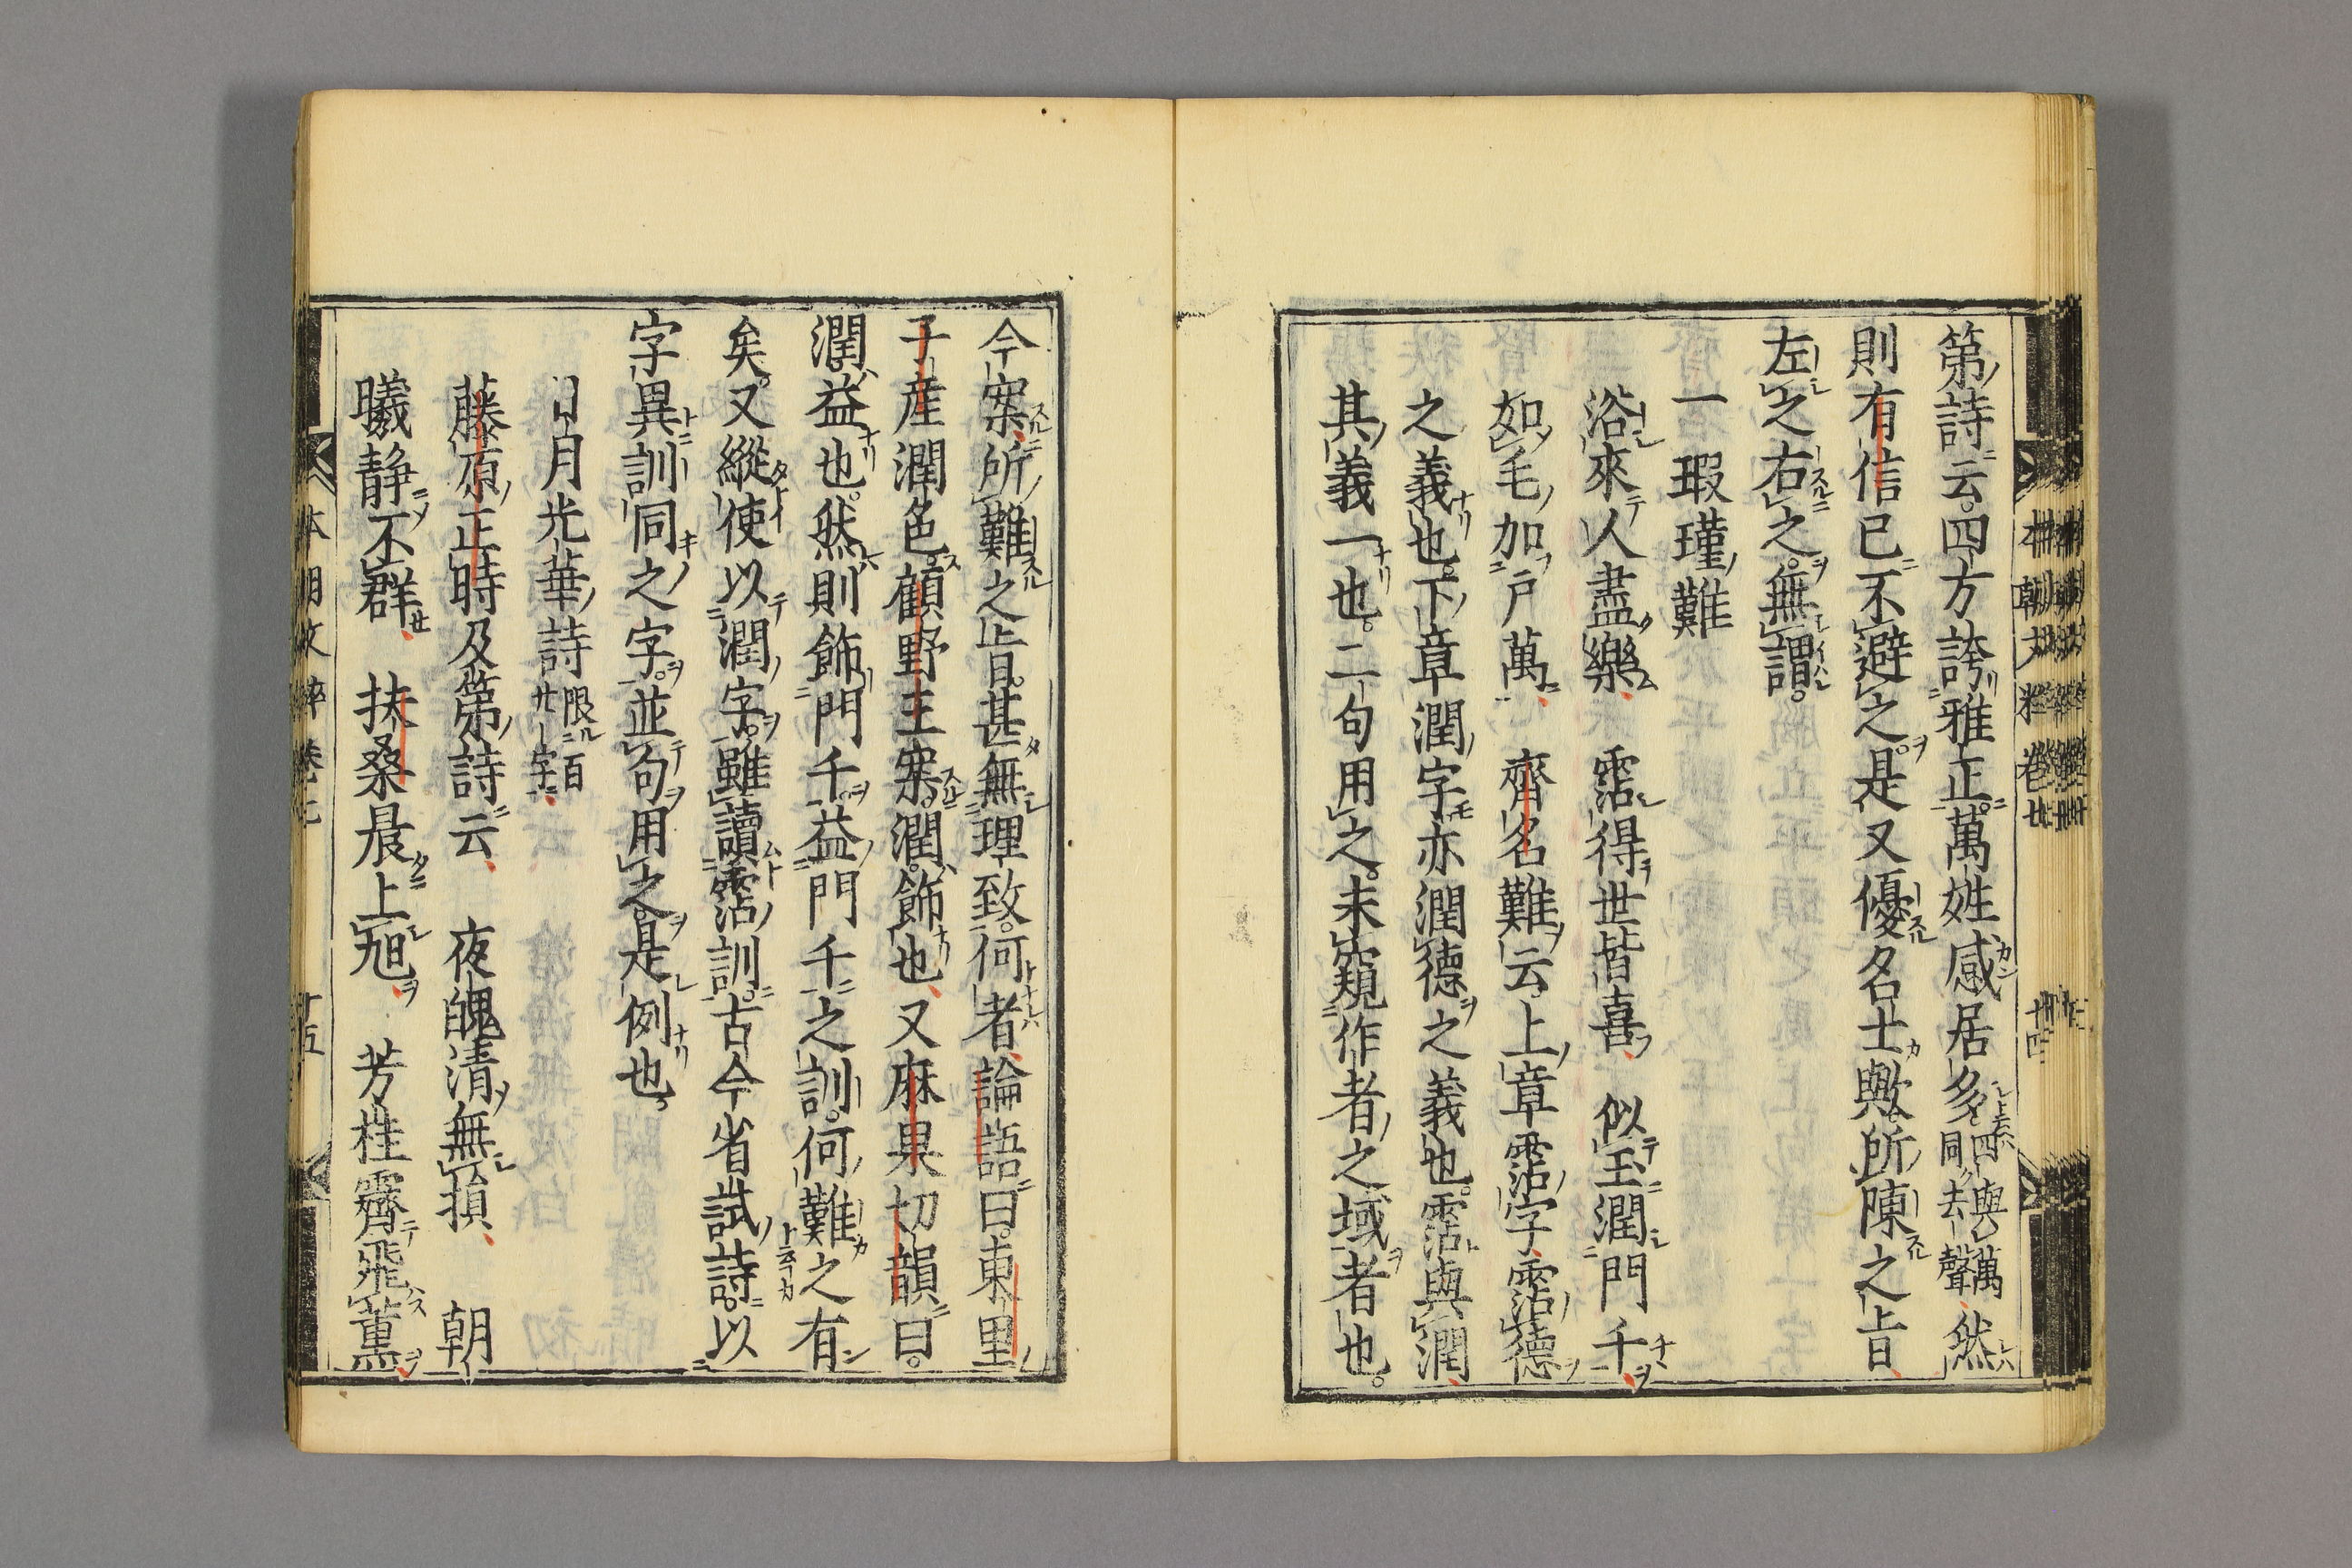 第詩云四方誇雅正萬姓感居多四與萬同去聲然
則有信已不避之是又優名士歟所陳之旨
左之右之無謂
一瑕瑾難
浴來人盡樂 霑得世皆喜 似玉潤門千
如毛加戸萬 齊名難云上章霑字霑德
之義也下章潤字亦潤德之義也霑與潤
其義一也二句用之未窺作者之域者也
今案所難之旨甚無理致何者論語曰東里
子產潤色顧野王案潤飾也又麻果切韻曰
潤益也然則飾門千益門千之訓何難之有
矣又縱使以潤字雖讀霑訓古今省試詩以
字異訓同之字並句用之是例也
日月光華詩限百廿字
藤原正時及第詩云 夜魄清無損 朝
曦静不群 扶桑晨上旭 芳桂霽飛薫